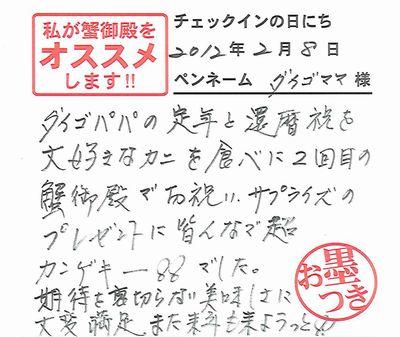 私が蟹御殿を
オススメ
します!!
チェックインの日にち
2012年2月8日
ペンネーム ダイゴママ 様
ダイゴパパの定年と還暦祝を
大好きなカニを食べに2回目の
蟹御殿でお祝い。サプライズの
プレゼントに皆んなで超
カンゲキー88でした。
期待を裏切らない美味しさに
大変満足。また来年も来ようっと
お墨つき